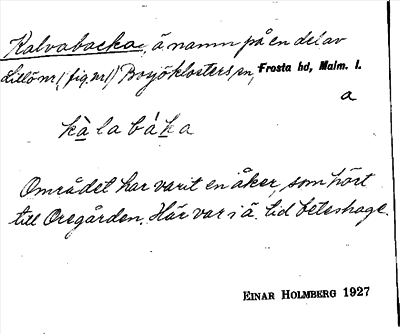 Kalvabacka, ä namn på en del av
Lillö nr 1, (fig. nr 1) Bosjöklosters sn, Frosta hd, Malm. l.
a
kàlabáka
Området har varit en åker, som hört
till Oregården. Här var i ä. tid beteshage.
EINAR HOLMBERG 1927